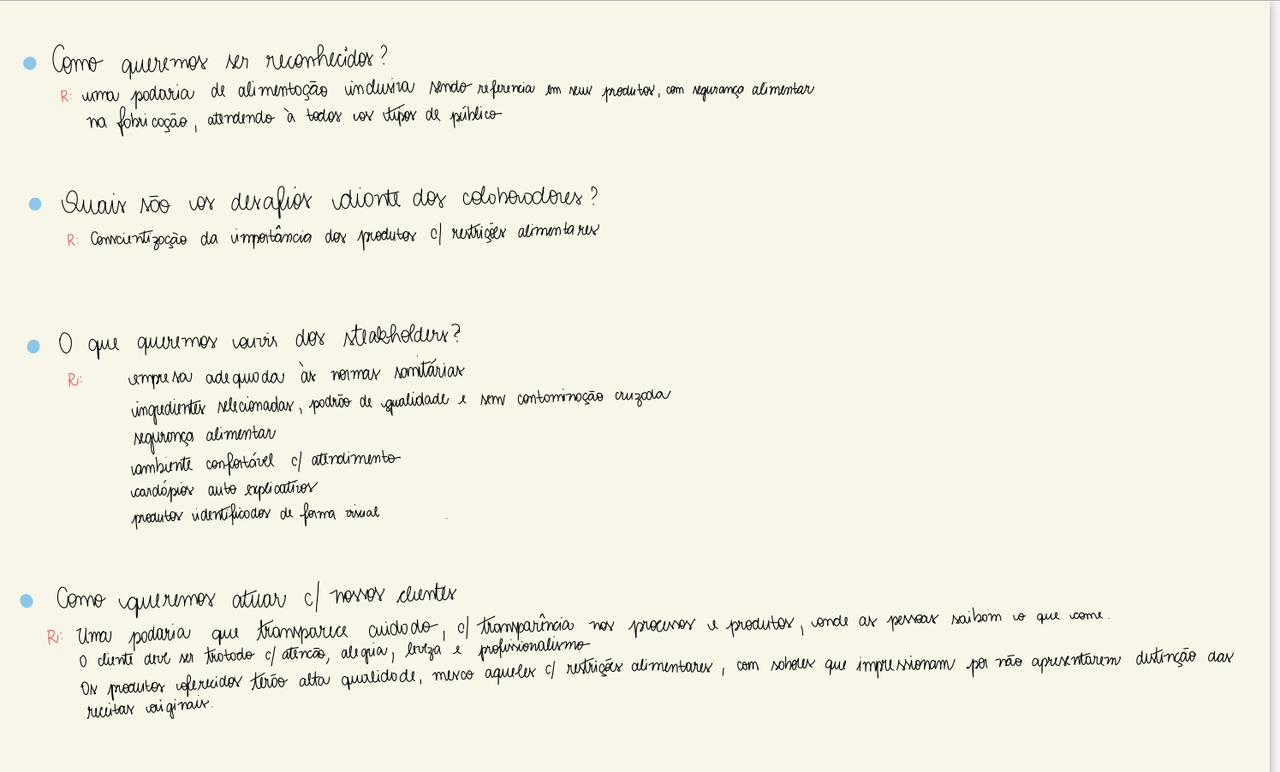 Como queremos ser reconhecidos?
R: uma padaria de alimentação inclusiva sendo referencia em seus produtos, com segurança alimentar
na fabricação, atendendo à todos os tipos de público
Quais são os desafios diante dos colaboradores?
R: Conscientização da importância dos produtos c/ restrições alimentares
O que queremos ouvir dos steakholders?
R: empresa adequada às normas sanitárias
ingredientes selecionados, padrão de qualidade e sem contaminação cruzada
segurança alimentar
ambiente confortável c/ atendimento
cardápios auto explicativos
produtos identificados de forma visual
Como queremos atuar c/ nossos clientes
R: Uma padaria que transparece cuidado, c/ transparência nos processos e produtos, onde as pessoas saibam o que come.
O cliente deve ser tratado c/ atencão, alegria, leveza e profissionalismo
Os produtos oferecidos terão alta qualidade, mesmo aqueles c/ restrições alimentares, com sabores que impressionam por não apresentarem distinção das
receitas originais.